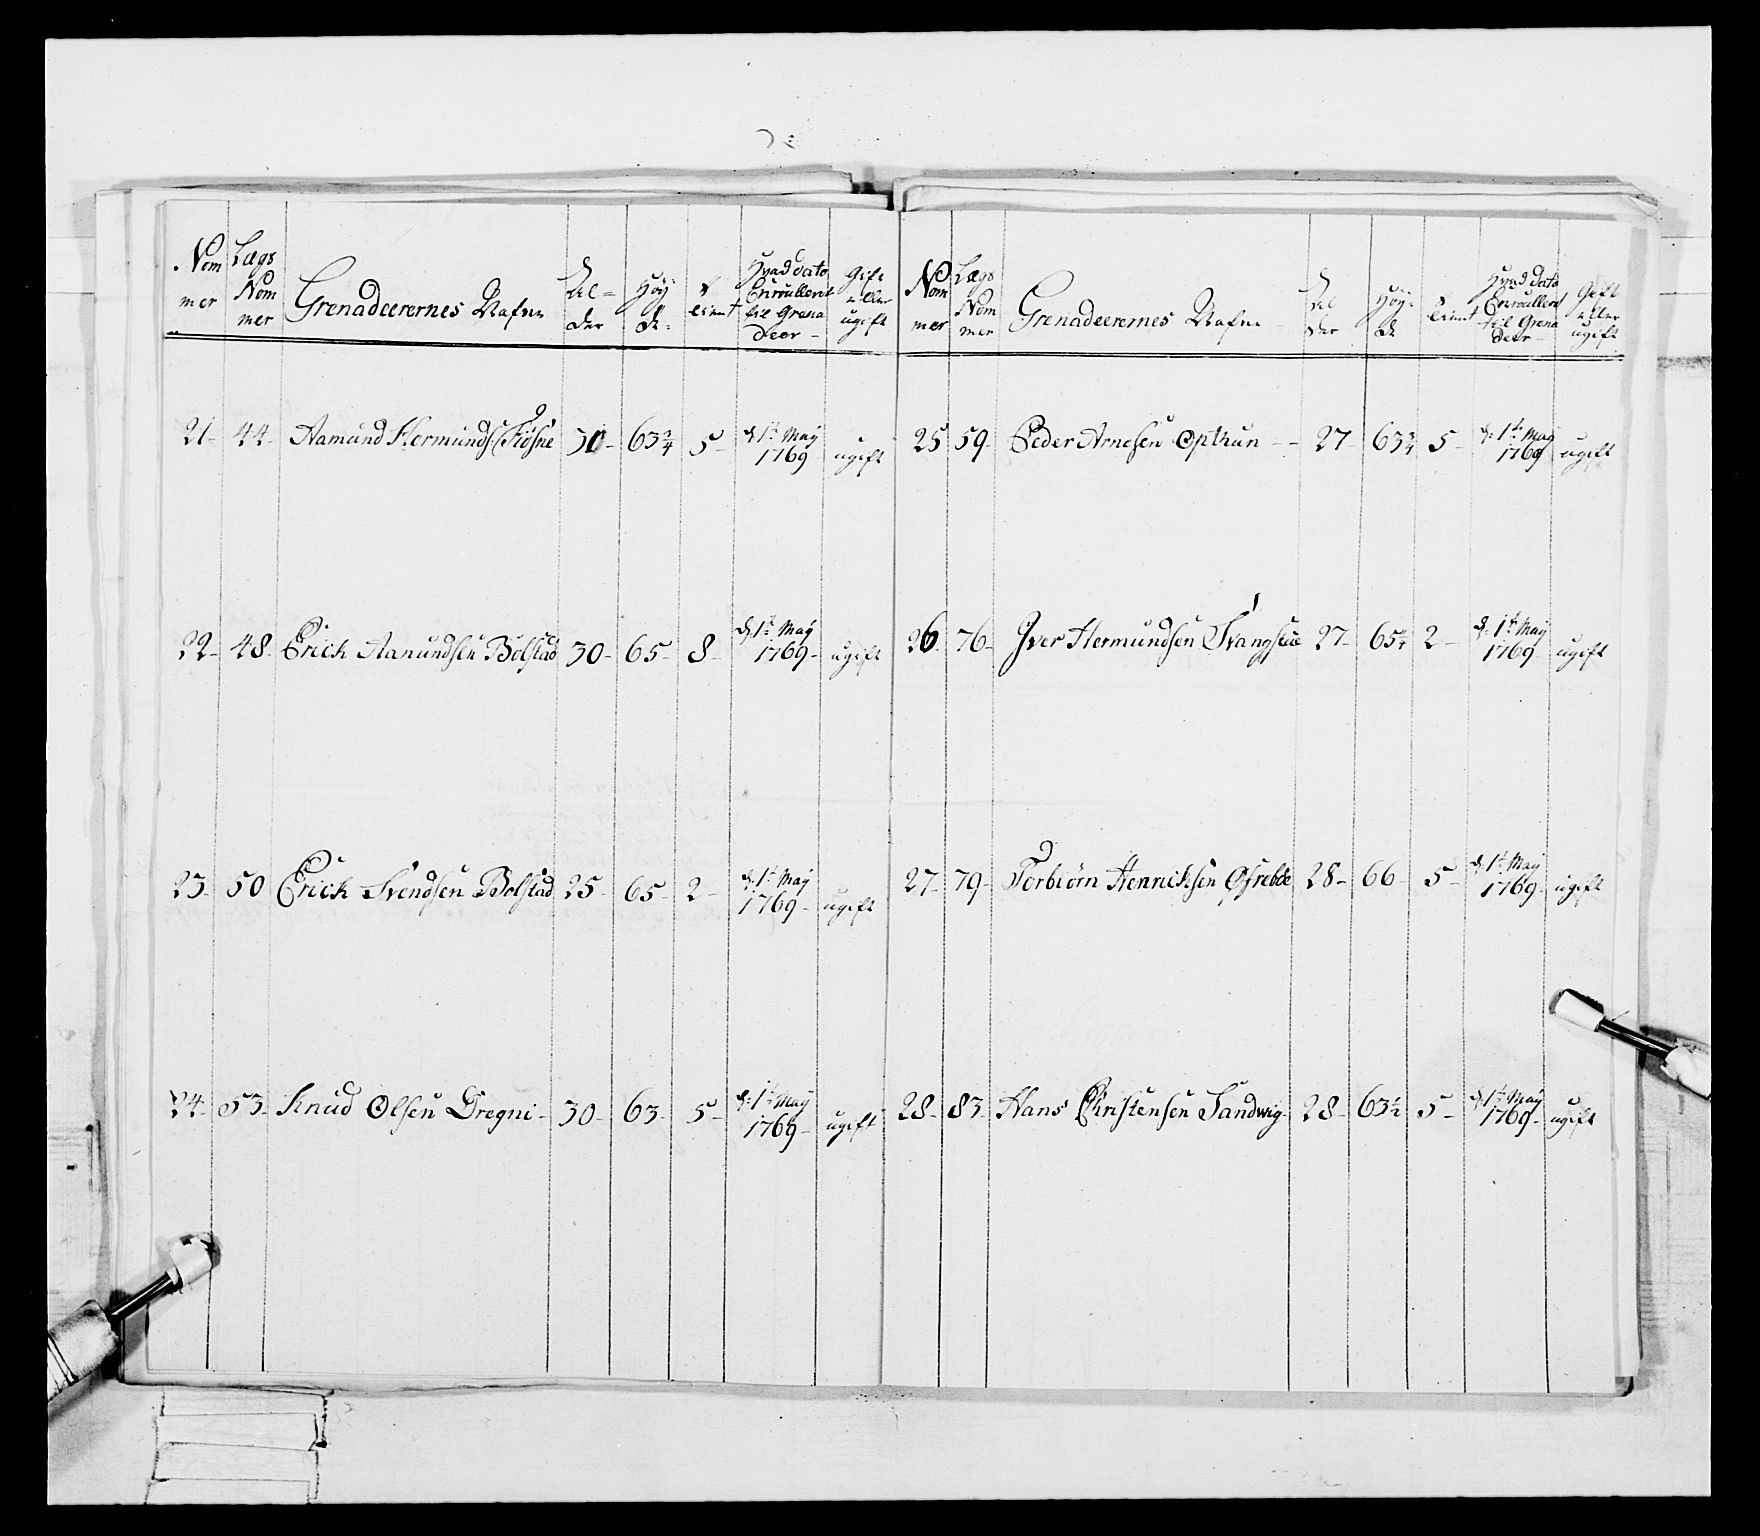 Nom mer | Lægs Nom mer | Grenadeerernes Nafne | Al= der | Höÿ de | tient | Hvad dato Enroullerit til Grena deer | Gift eller ugift
21 | 44 | Aamund Hermunds: Fiøsne | 30 | 63 3/4 | 5 | d: 1te Maÿ 1769 | ugift
22 | 48 | Erick Aamundsen Bolstad | 30 | 65 | 8 | d: 1te Maÿ 1769 | ugift
23 | 50 | Erick Svendsen Bolstad | 25 | 65 | 2 | d: 1te Maÿ 1769 | ugift
24 | 53 | Knud Olsen Dregni | 30 | 63 | 5 | d: 1te Maÿ 1769 | ugift
Nom mer | Lægs Nom mer | Grenadeerernes Nafne | Al der | Höÿ= de | tient | Hvad dato Enroullerit til Grena deer | Gift eller ugift
25 | 59 | Peder Arnesen Opthun | 27 | 63 3/4 | 5 | d: 1te Maÿ 1769 | ugift
26 | 76 | Iver Hermundsen | 27 | 65 1/2 | 2 | d: 1te Maÿ 1769 | ugift
27 | 79 | Torbiörn Henricksen | 28 | 66 | 5 | d: 1te Maÿ 1769 | ugift
28 | 83 | Hans Christensen Sandwig | 28 | 63 1/2 | 5 | d: 1te Maÿ 1769 | ugift